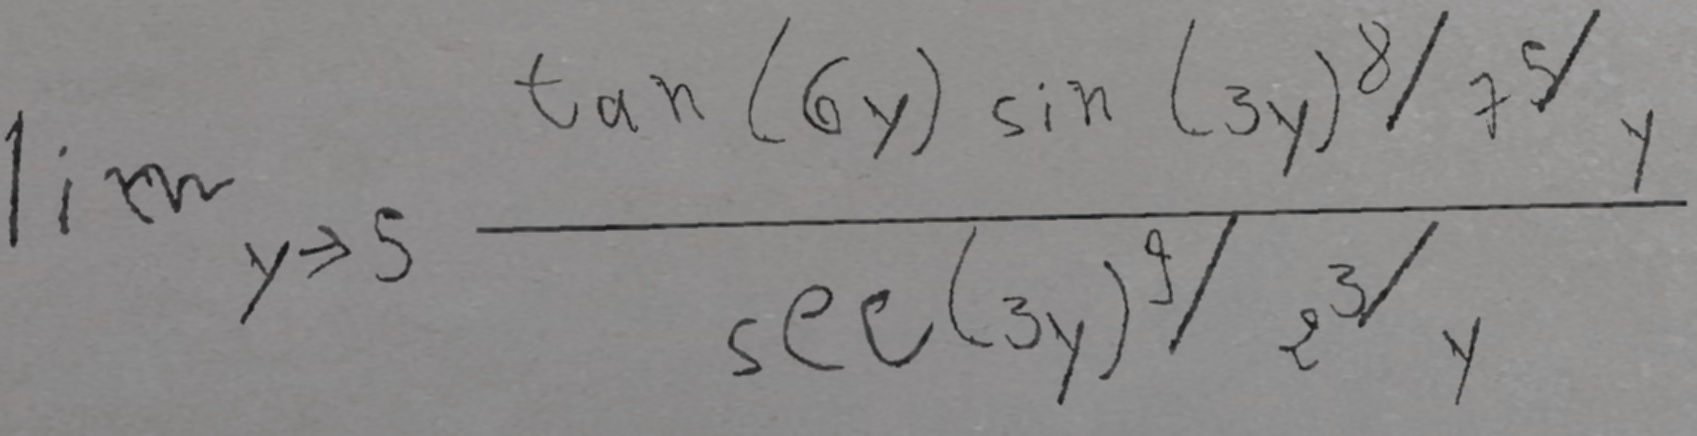 lim y→5 \frac{tan(6y) sin(3y)^8/7^5/y}{sec(3y)^9/2^3/y}